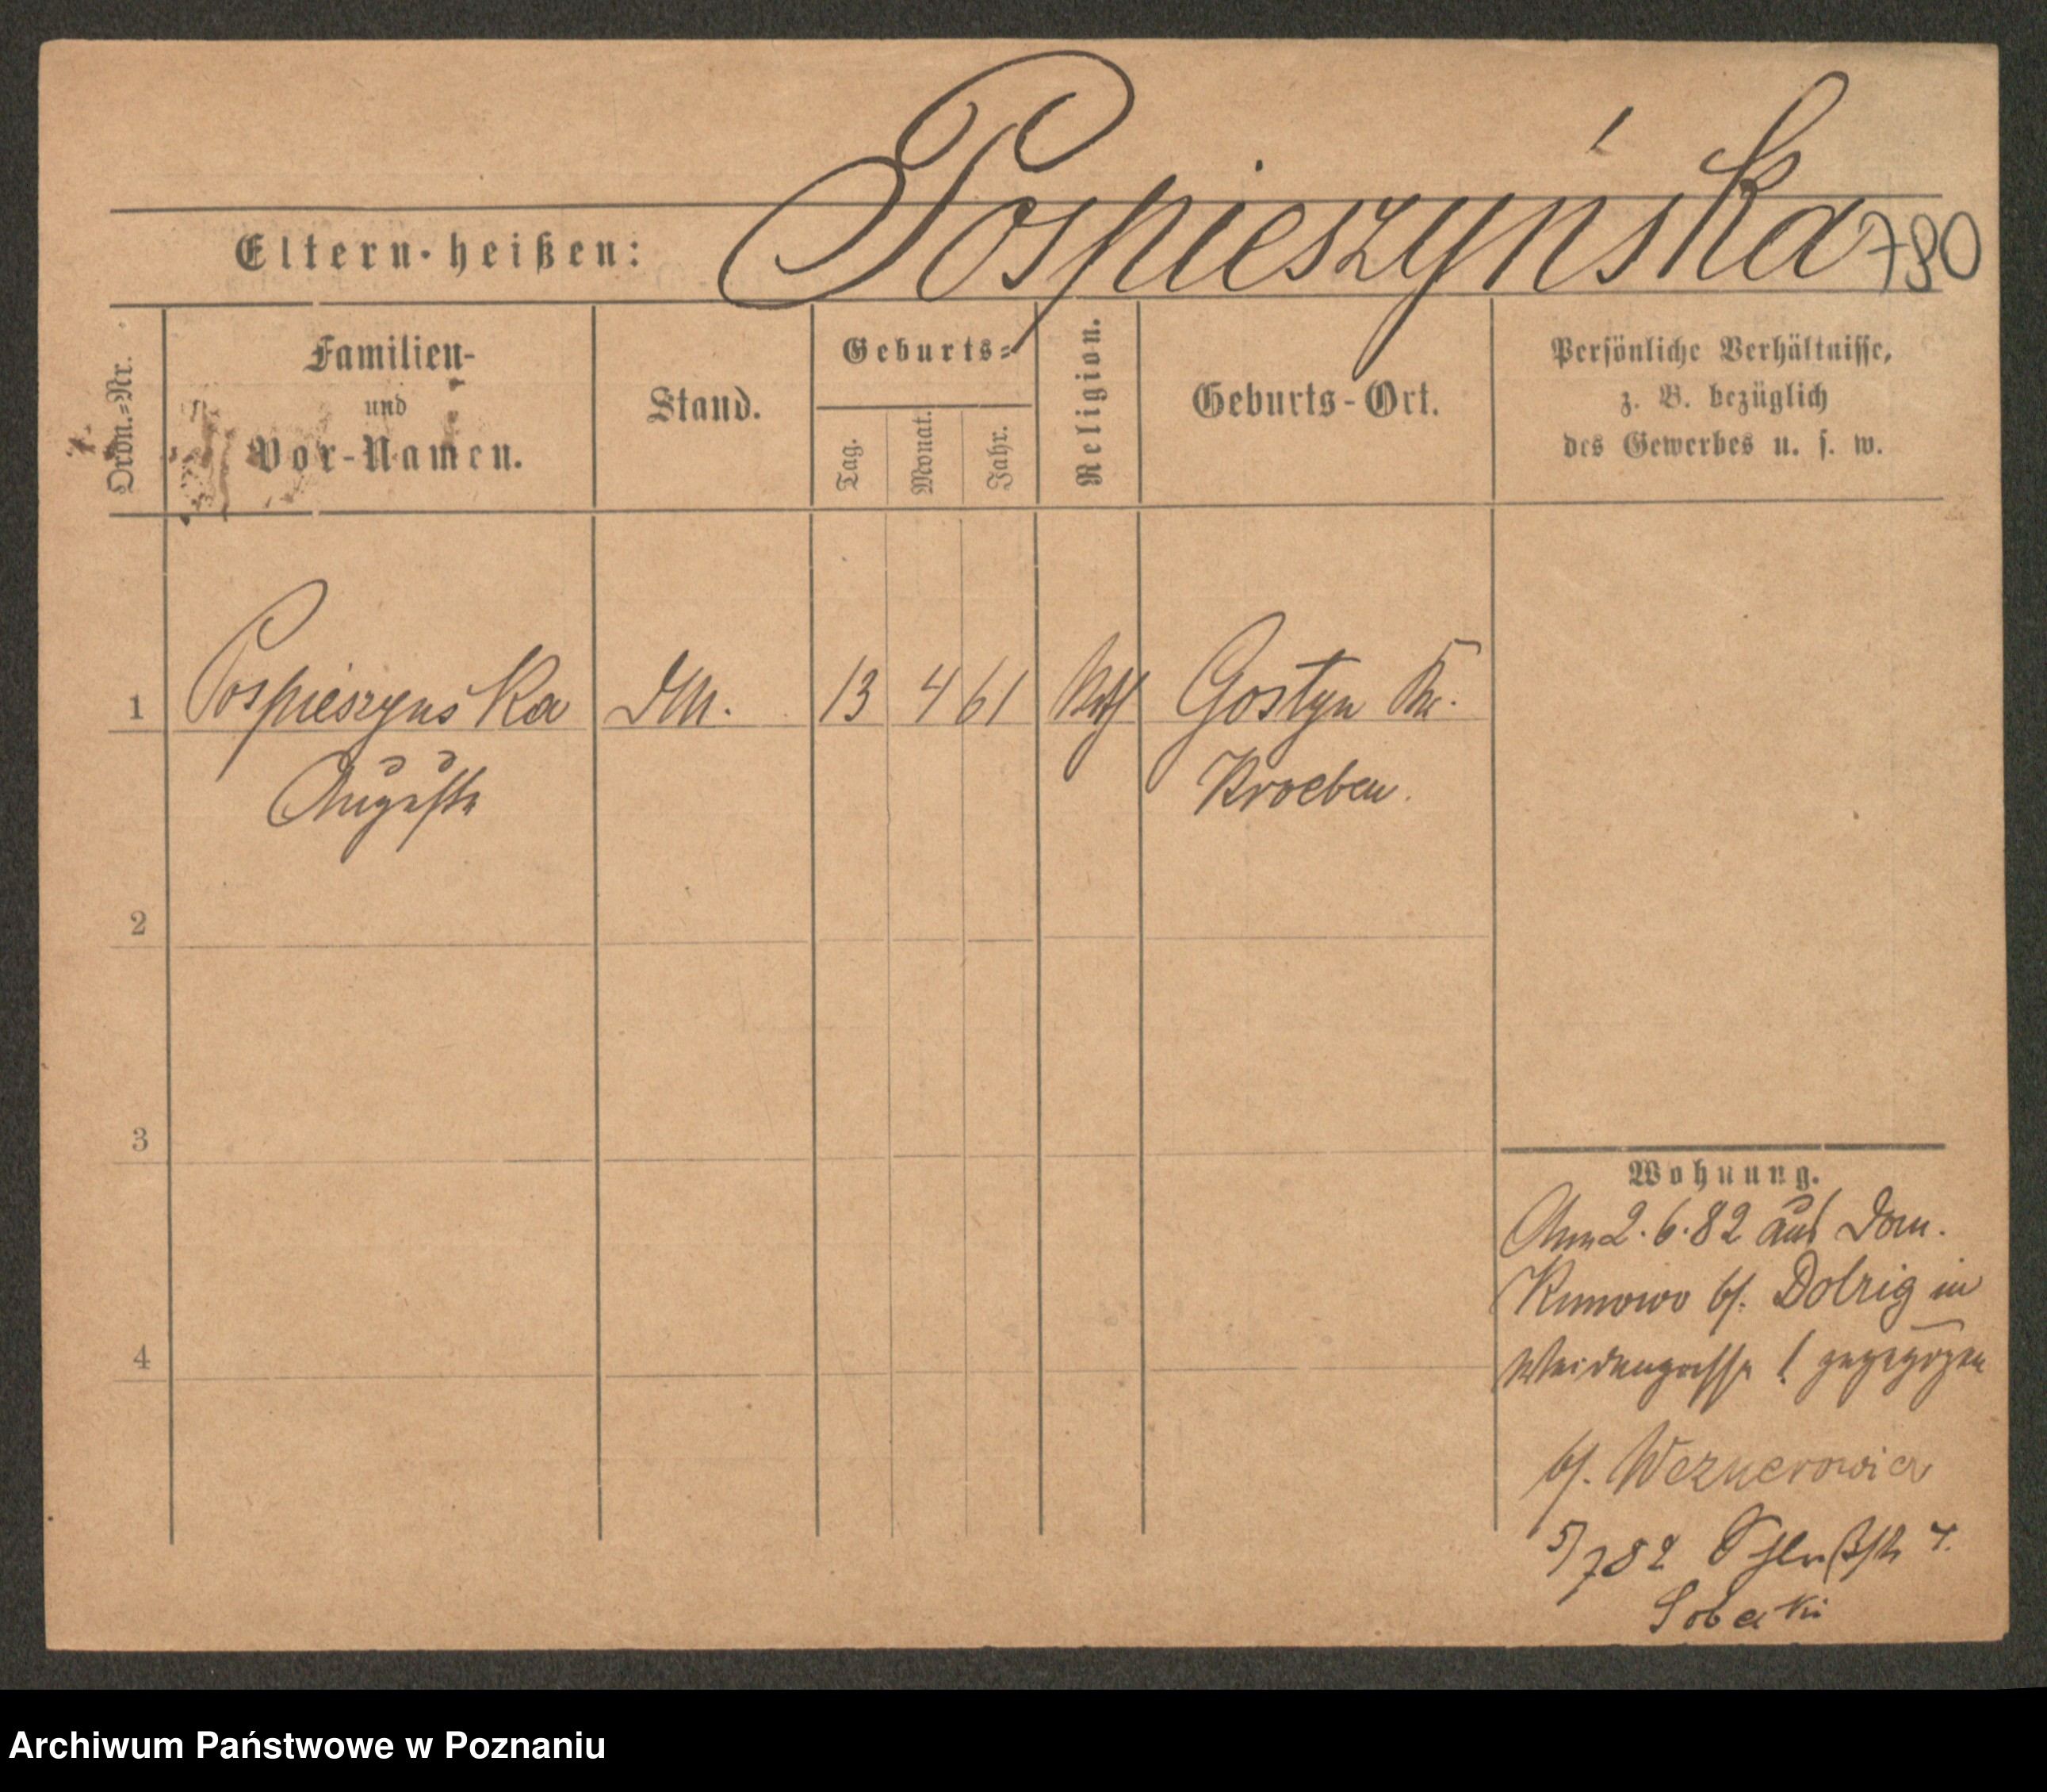 Pospieszyńska
780
Eltern-heißen:
Ordn.-Nr.
Familien-
und
Vor-Namen.
Stand.
Geburts-
Tag.
Monat.
Jahr.
Religion.
Geburts-Ort.
Persönliche Verhältnisse,
z. B. bezüglich
des Gewerbes u. s. w.
1 Pospieszynska DM. 13 4 61 Kth Gostyn Kr.
Auguste Kroeben.
2
3
4
Wohnung.
Am 2.6.82 aus Dom.
Kunowo bh. Dolzig in
Weidengasse 1 gezogen
bh.
5/7 82 4.
Sobecki
Archiwum Państwowe w Poznaniu